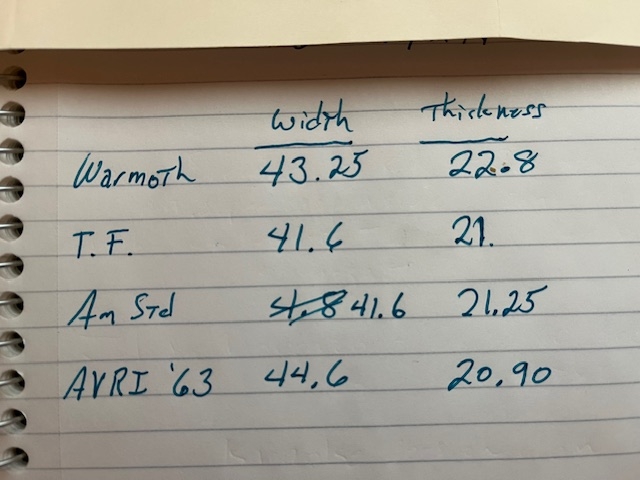 Width Thickness
Warmoth 43.25 22.8
T.F. 41.6 21.
Am Std 41.8 41.6 21.25
AVRI '63 44.6 20.90